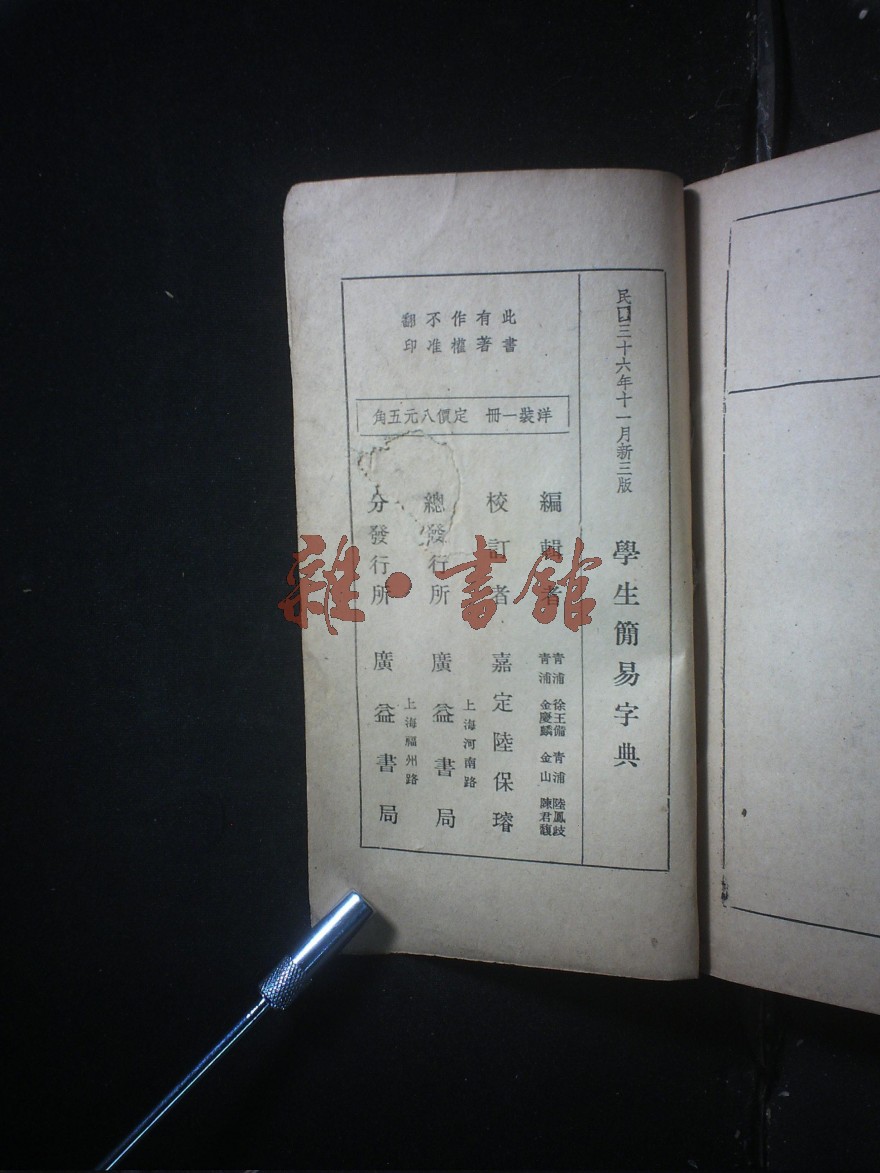 民國三十六年十一月新三版
學生簡易字典
此書有著作權不准翻印
洋裝一冊 定價八元五角
編輯者
青浦 徐王備 青浦 陸鳳歧
青浦 金慶麟 金山 陳君馥
校訂者 嘉定陸保璿
總發行所 上海河南路 廣益書局
分發行所 上海福州路 廣益書局
雜·書館